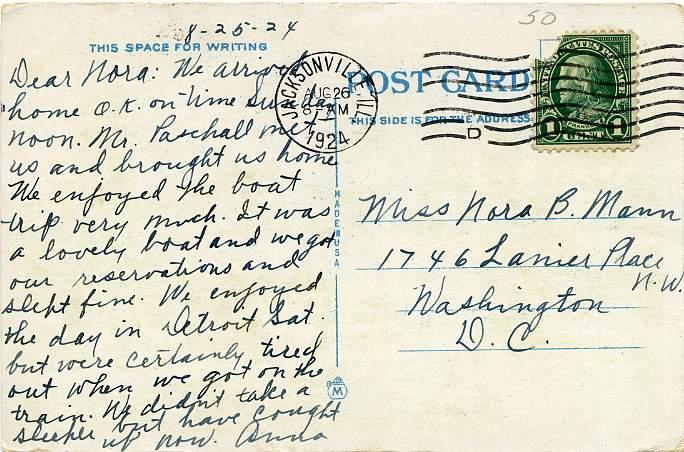 8-25-24
50
THIS SPACE FOR WRITING
POST CARD
THIS SIDE IS FOR THE ADDRESS
JACKSONVILLE ILL
AUG 26
8 AM
1924
D
UNITED STATES POSTAGE
1 CENT 1
Dear Nora: We arrived
home O.K. on time Sunday
noon. Mr. Paschall met
us and brought us home
We enjoyed the boat
trip very much. It was
a lovely boat and we got
our reservations and
slept fine. We enjoyed
the day in Detroit Sat.
but were certainly tired
out when we got on the
train. We didn't take a
sleeper but have caught
up now. Anna
MADE IN USA
M
Miss Nora B. Mann
1746 Lanier Place
N.W.
Washington
D. C.